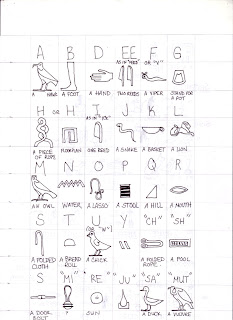 A B D EE F G
AS IN "FEED" OR "V"
HAWK A FOOT A HAND TWO REEDS A VIPER STAND FOR A POT
H OR H I J K L
AS IN "INK"
A PIECE OF ROPE FLOORPLAN ONE REED A SNAKE A BASKET A LION
M N O P Q R
AN OWL WATER A LASSO A STOOL A HILL A MOUTH
S T U Y "CH" SH"
OR "W"
A FOLDED CLOTH A BREAD ROLL A CHICK A FOLDED ROPE A POOL
S "MI" RE "JU" "SA" MUT
A DOOR BOLT ? SUN A DUCK A VULTURE